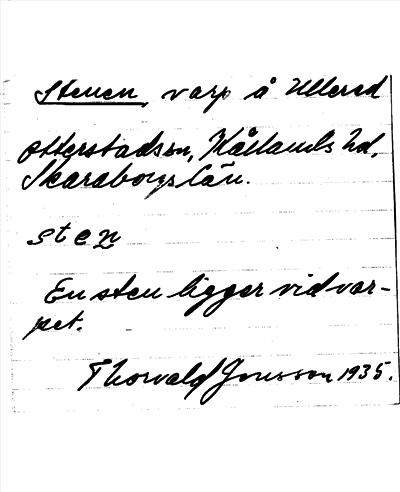 Stenen, varp å Ullered
Otterstadssn, Kållands hd,
Skaraborgs län.
sten
En sten ligger vid var-
pet.
Thorvald Jonsson 1935.